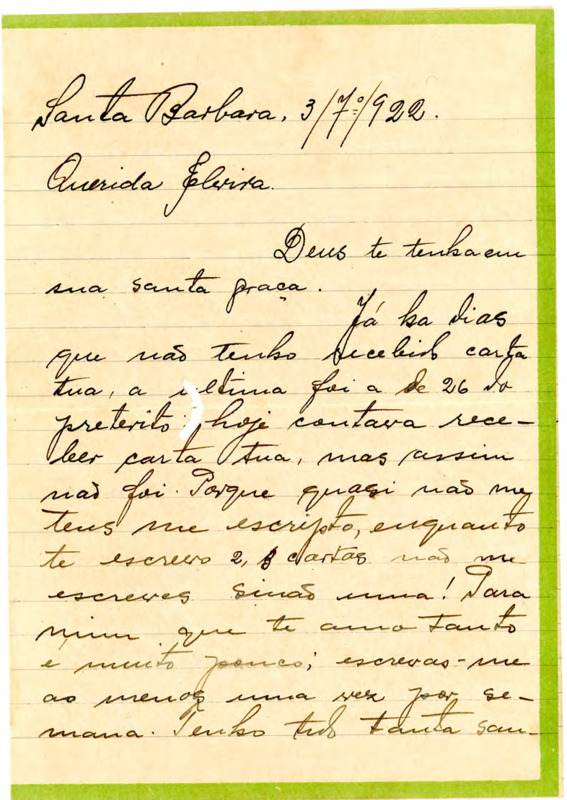 Santa Barbara, 3/7º/922.
Querida Elvira.
Deus te tenha em
sua santa graça.
Já ha dias
que não tenho recebido carta
tua, a ultima foi a de 26 do
preterito, hoje contava rece-
ber carta tua, mas assim
não foi. Porque quasi não me
tens me escripto, enquanto
te escrevo 2, 3 cartas não me
escreves sinão uma! Para
mim que te amo tanto
e muito pouco; escrevas-me
ao menos uma vez por se-
mana. Tenho tido tanta sau-